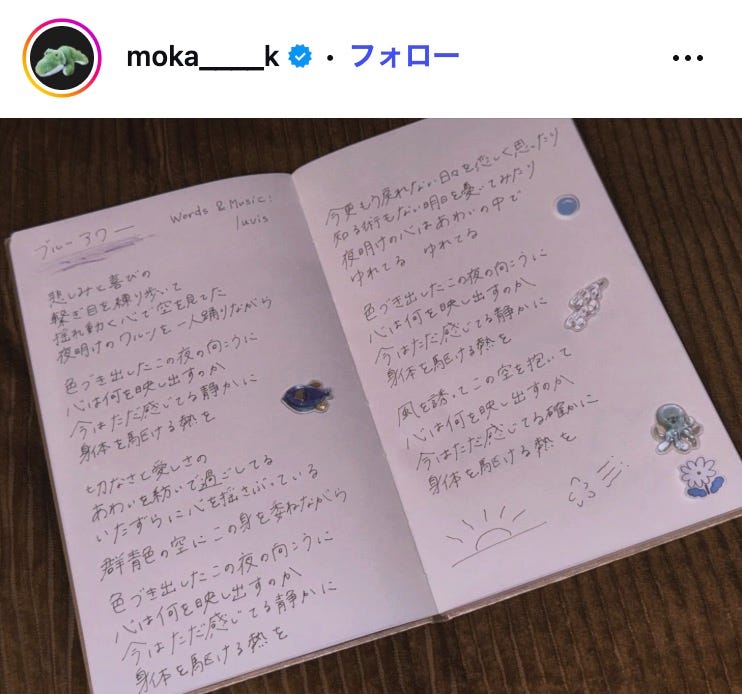 moka____k • フォロー
ブルーアワー
Words & Music:
luvis
悲しみと喜びの
繋ぎ目を練り歩いて
揺れ動く心で空を見てた
夜明けのワルツを一人踊りながら
色づき出したこの夜の向こうに
心は何を映し出すのか
今はただ感じてる静かに
身体を駆ける熱を
切なさと愛しさの
あわいを紡いで過ごしてる
いたずらに心を揺さぶっている
群青色の空にこの身を委ねながら
色づき出したこの夜の向こうに
心は何を映し出すのか
今はただ感じてる静かに
身体を駆ける熱を
今更もう戻れない日々を恋しく思ったり
知る術もない明日を憂いてみたり
夜明けの心はあわいの中で
ゆれてる ゆれてる
色づき出したこの夜の向こうに
心は何を映し出すのか
今はただ感じてる静かに
身体を駆ける熱を
風を誘ってこの空を抱いて
心は何を映し出すのか
今はただ感じてる確かに
身体を駆ける熱を